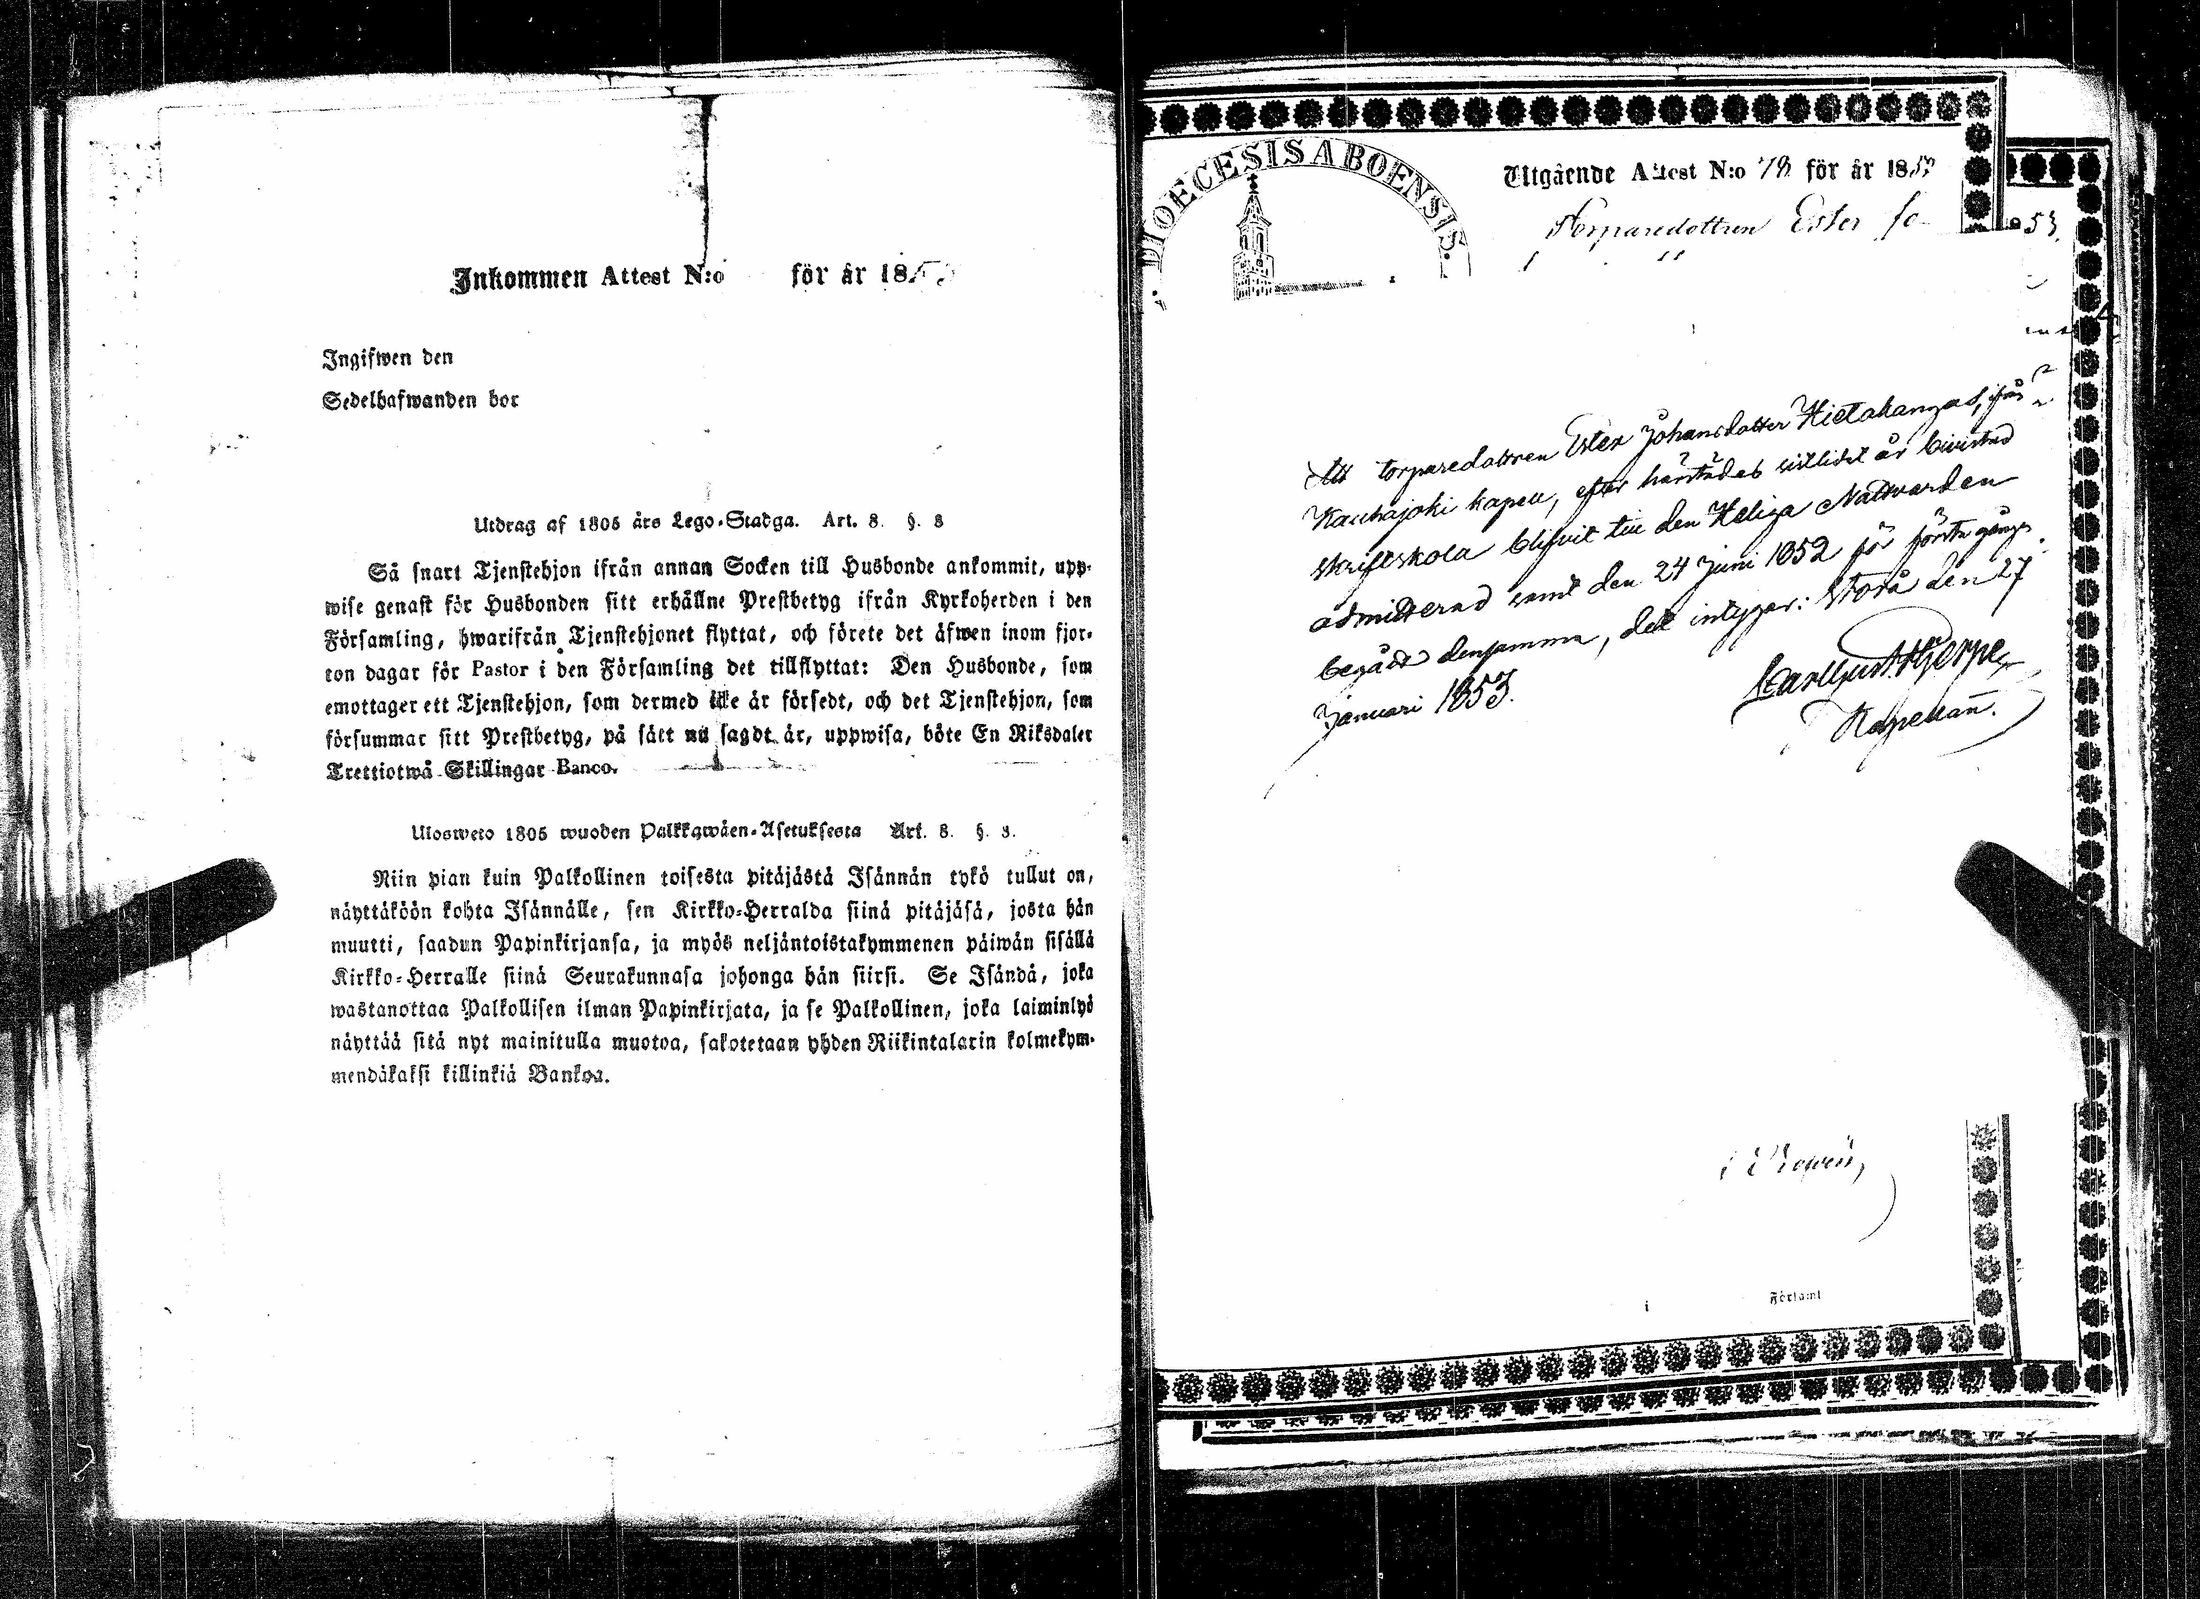 Inkommen Attest N:o för år 185
Ingifwen den
Sedelhafwanden bor
Utdrag af 1805 års Lego-Stadga. Art. 8. §. 8
Så snart Tjenstehjon ifrån annan Socken till Husbonde ankommit, upp-
wise genast för Husbonden sitt erhållne Prestbetyg ifrån Kyrkoherden i den
Församling, hwarifrån Tjenstehjonet flyttat, och förete det äfwen inom fjor-
ton dagar för Pastor i den Församling det tillflyttat: Den Husbonde, som
emottager ett Tjenstehjon, som dermed icke är försedt, och det Tjenstehjon, som
försummar sitt Prestbetyg, på sätt nu sagdt är, uppwisa, böte En Riksdaler
Trettiotwå Skillingar Banco.
Ulosweto 1805 wuoden Palkkawäen-Asetuksesta Art. 8. §. 8.
Niin pian kuin Palkollinen toisesta pitäjästä Isännän tykö tullut on,
näyttäköön kohta Isännälle, sen Kirkko-Herralda siinä pitäjäsä, josta hän
muutti, saadun Papinkirjansa, ja myös neljäntoistakymmenen päiwän sisällä
Kirkko-Herralle siinä Seurakunnasa johonga hän siirsi. Se Isändä, joka
wastanottaa Palkollisen ilman Papinkirjata, ja se Palkollinen, joka laiminlyö
näyttää sitä nyt mainitulla muotoa, sakotetaan yhden Riikintalarin kolmekym-
mendäkaksi killinkiä Bankoa.
DIOECESIS ABOENSIS.
Utgående Attest N:o 78 för år 185
Torparedottren Ester
53.
Att torparedottren Ester Johansdotter Hietakangas, från
Kauhajoki kapell, efter härstädes sistlidet år bivistad
skriftskola blifvit till den Heliga Nattvarden
admitterad samt den 24 Juni 1852 för första gången
begådt densamma, det intygar: Storå den 27
Januari 1853.
Carl Gust. Hjerpe
Kapellan.
i Församl